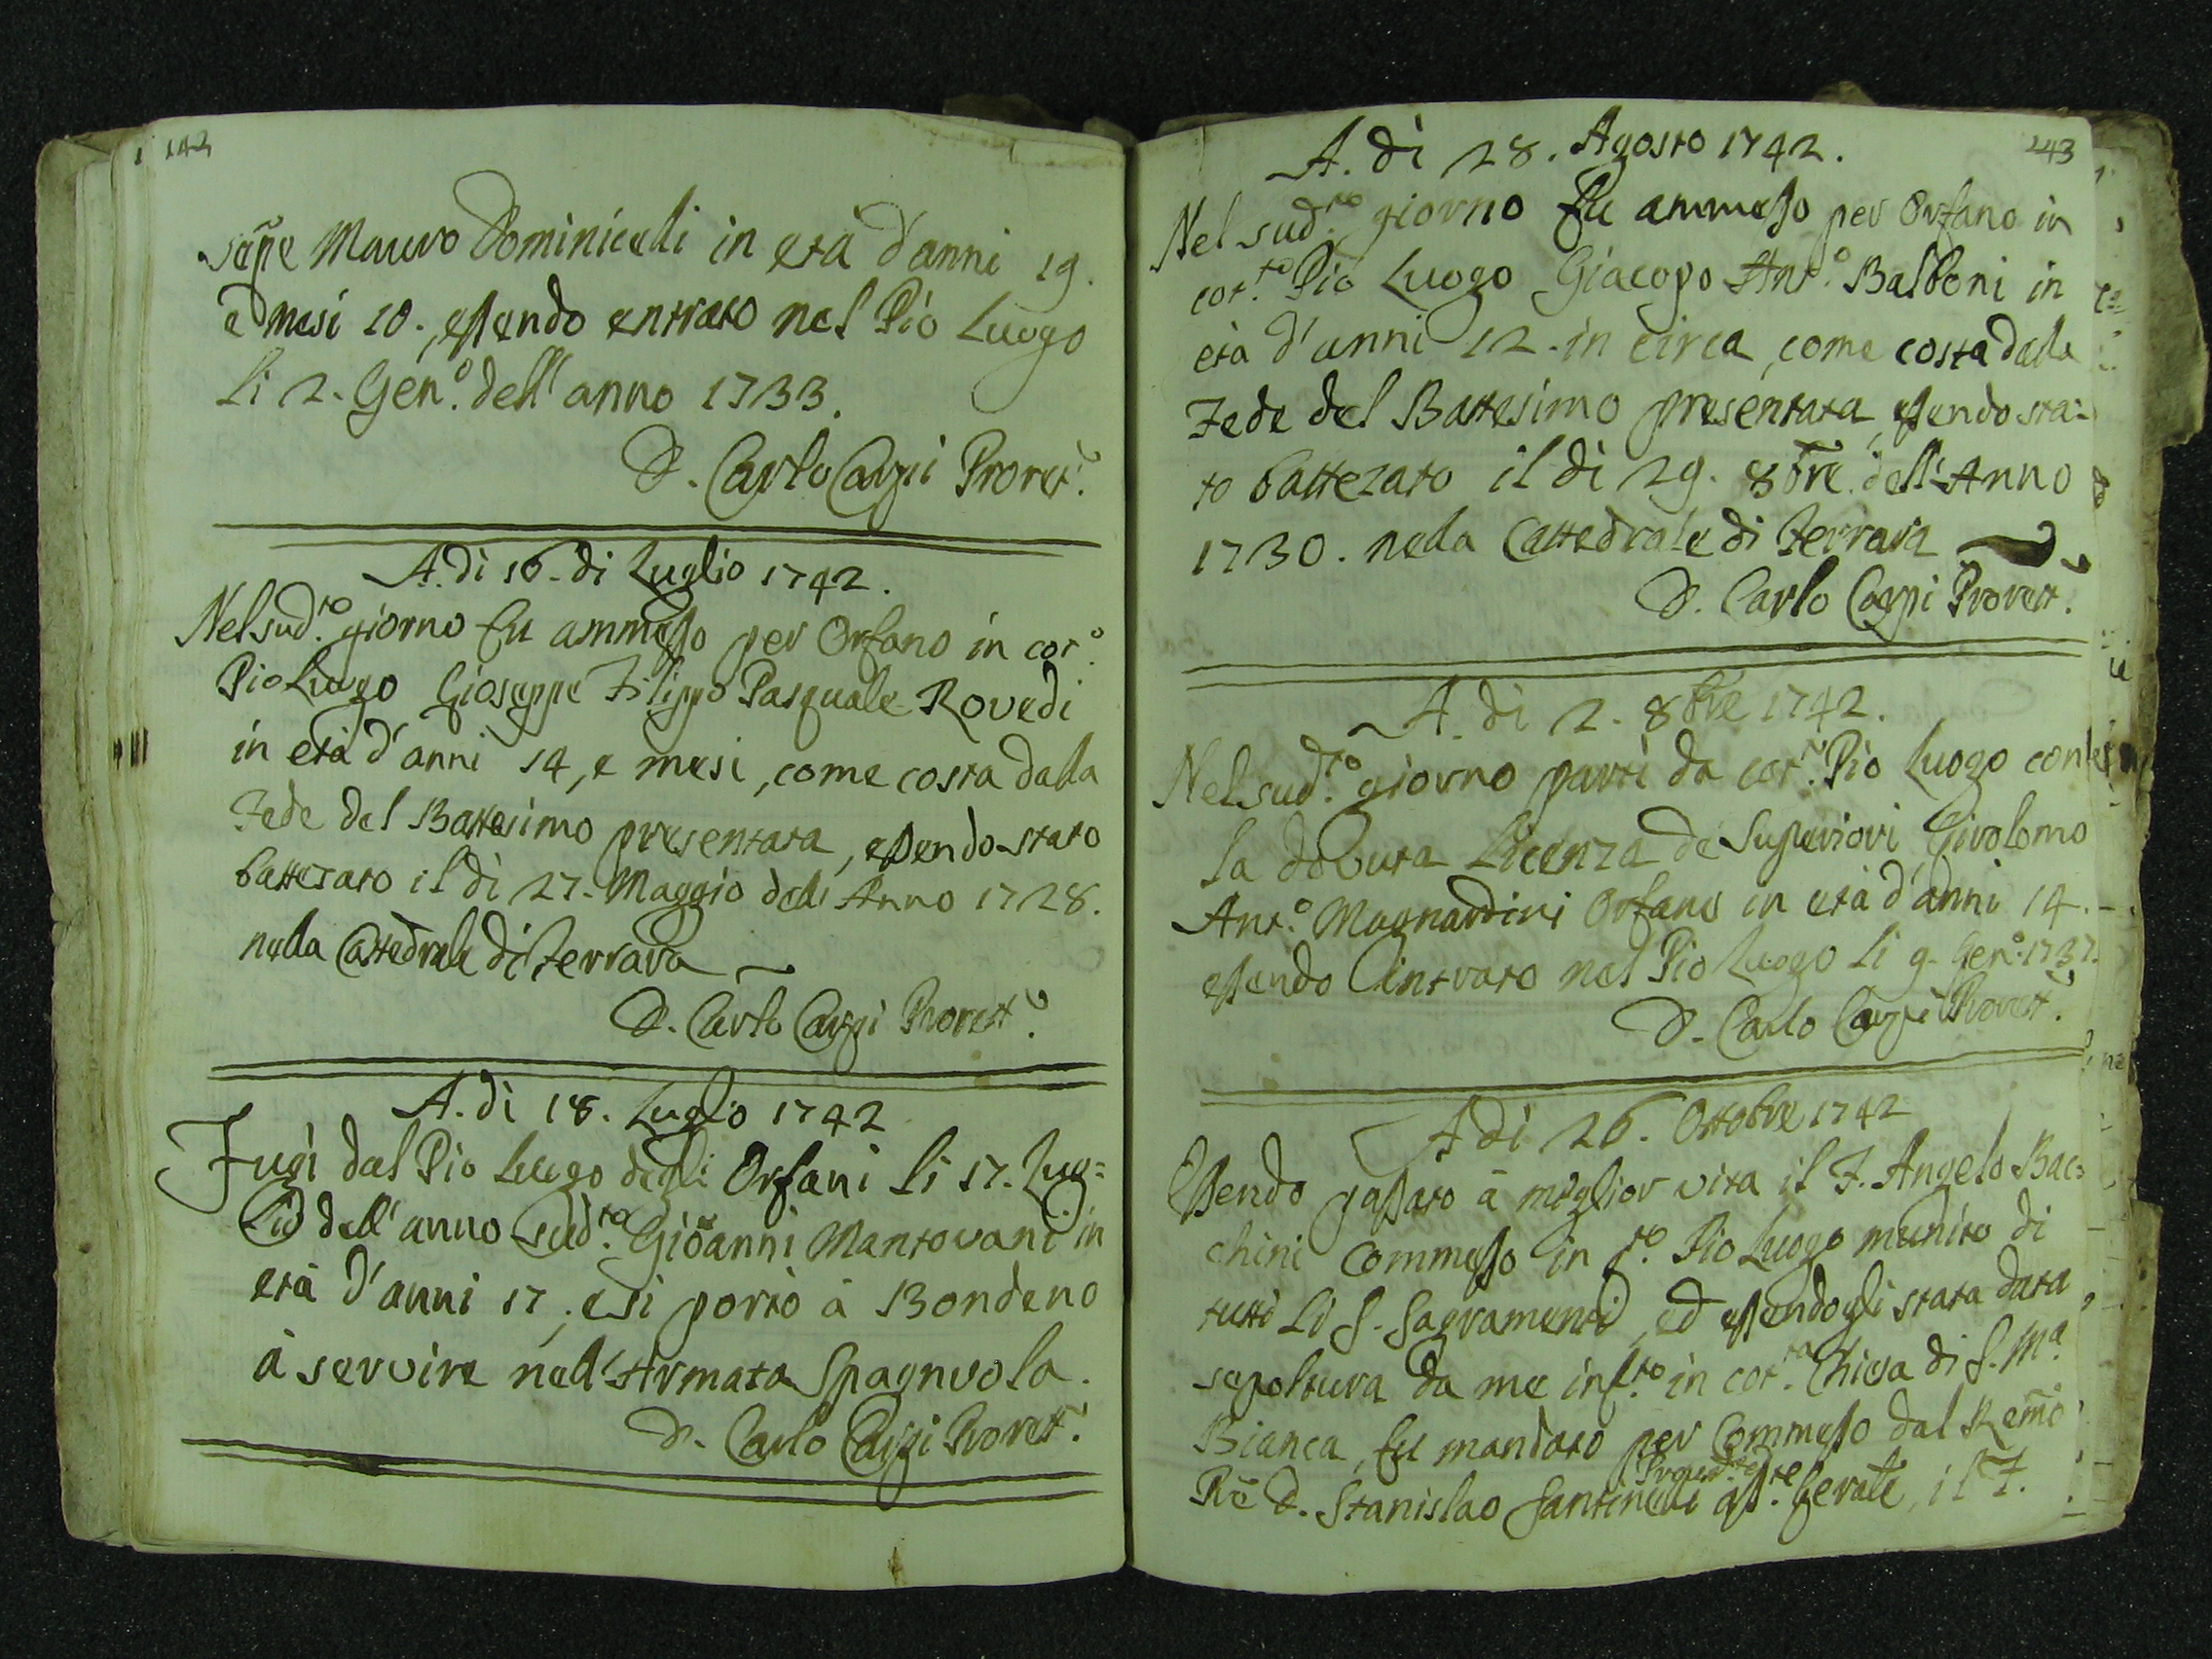 142
sepe Mauro Dominicali in età d'anni 19.
e mesi 10., essendo entrato nel Pio Luogo
li 2. Gen.º dell'anno 1733.
D. Carlo Carpi Proret.
A. dì 16. di Luglio 1742.
Nel sud.to giorno fu ammesso per Orfano in cot.º
Pio Luogo Gioseppe Filippo Pasquale Rovedi
in età d'anni 14, e mesi, come costa dalla
Fede del Battesimo presentata, essendo stato
battezato il dì 27. Maggio dell'Anno 1728.
nella Cattedrale di Ferrara
D. Carlo Carpi Prorett.
A. dì 18. Luglio 1742
Fugì dal Pio Luogo degli Orfani li 17. Lug=
lio dell'anno sud.to Giõanni Mantovani in
età d'anni 17, e si portò à Bondeno
à servire nell'Armata Spagnuola.
D. Carlo Carpi Prorett.
143
A. dì 28. Agosto 1742.
Nel sud.to giorno fu ammesso per Orfano in
cot.to Pio Luogo Giacopo Ant.º Balboni in
età d'anni 12. in circa, come costa dalla
Fede del Battesimo presentata, essendo sta=
to battezato il dì 29. 8bre. dell'Anno
1730. nella Cattedrale di Ferrara
D. Carlo Carpi Prorett.
A. dì 2. 8bre 1742.
Nel sud.to giorno partì da cot. Pio Luogo con
la dovuta Licenza de Superiori Girolomo
Ant.º Magnardini Orfano in età d'anni 14.
essendo intrato nel Pio Luogo li 9. Gen.º 1737.
D. Carlo Carpi Prorett.
A dì 26. Ottobre 1742
Essendo passato à miglior vita il F. Angelo Bac=
chini Commesso in q.to Pio Luogo munito di
tutti li S. Sagramenti, ed essendogli stata data
sepoltura da me inf.to in cot.ta Chiesa di S. Mª
Bianca, fu mandato per Commesso dal Remõ
Rẽ D. Stanislao Santinelli Gerale, il F.